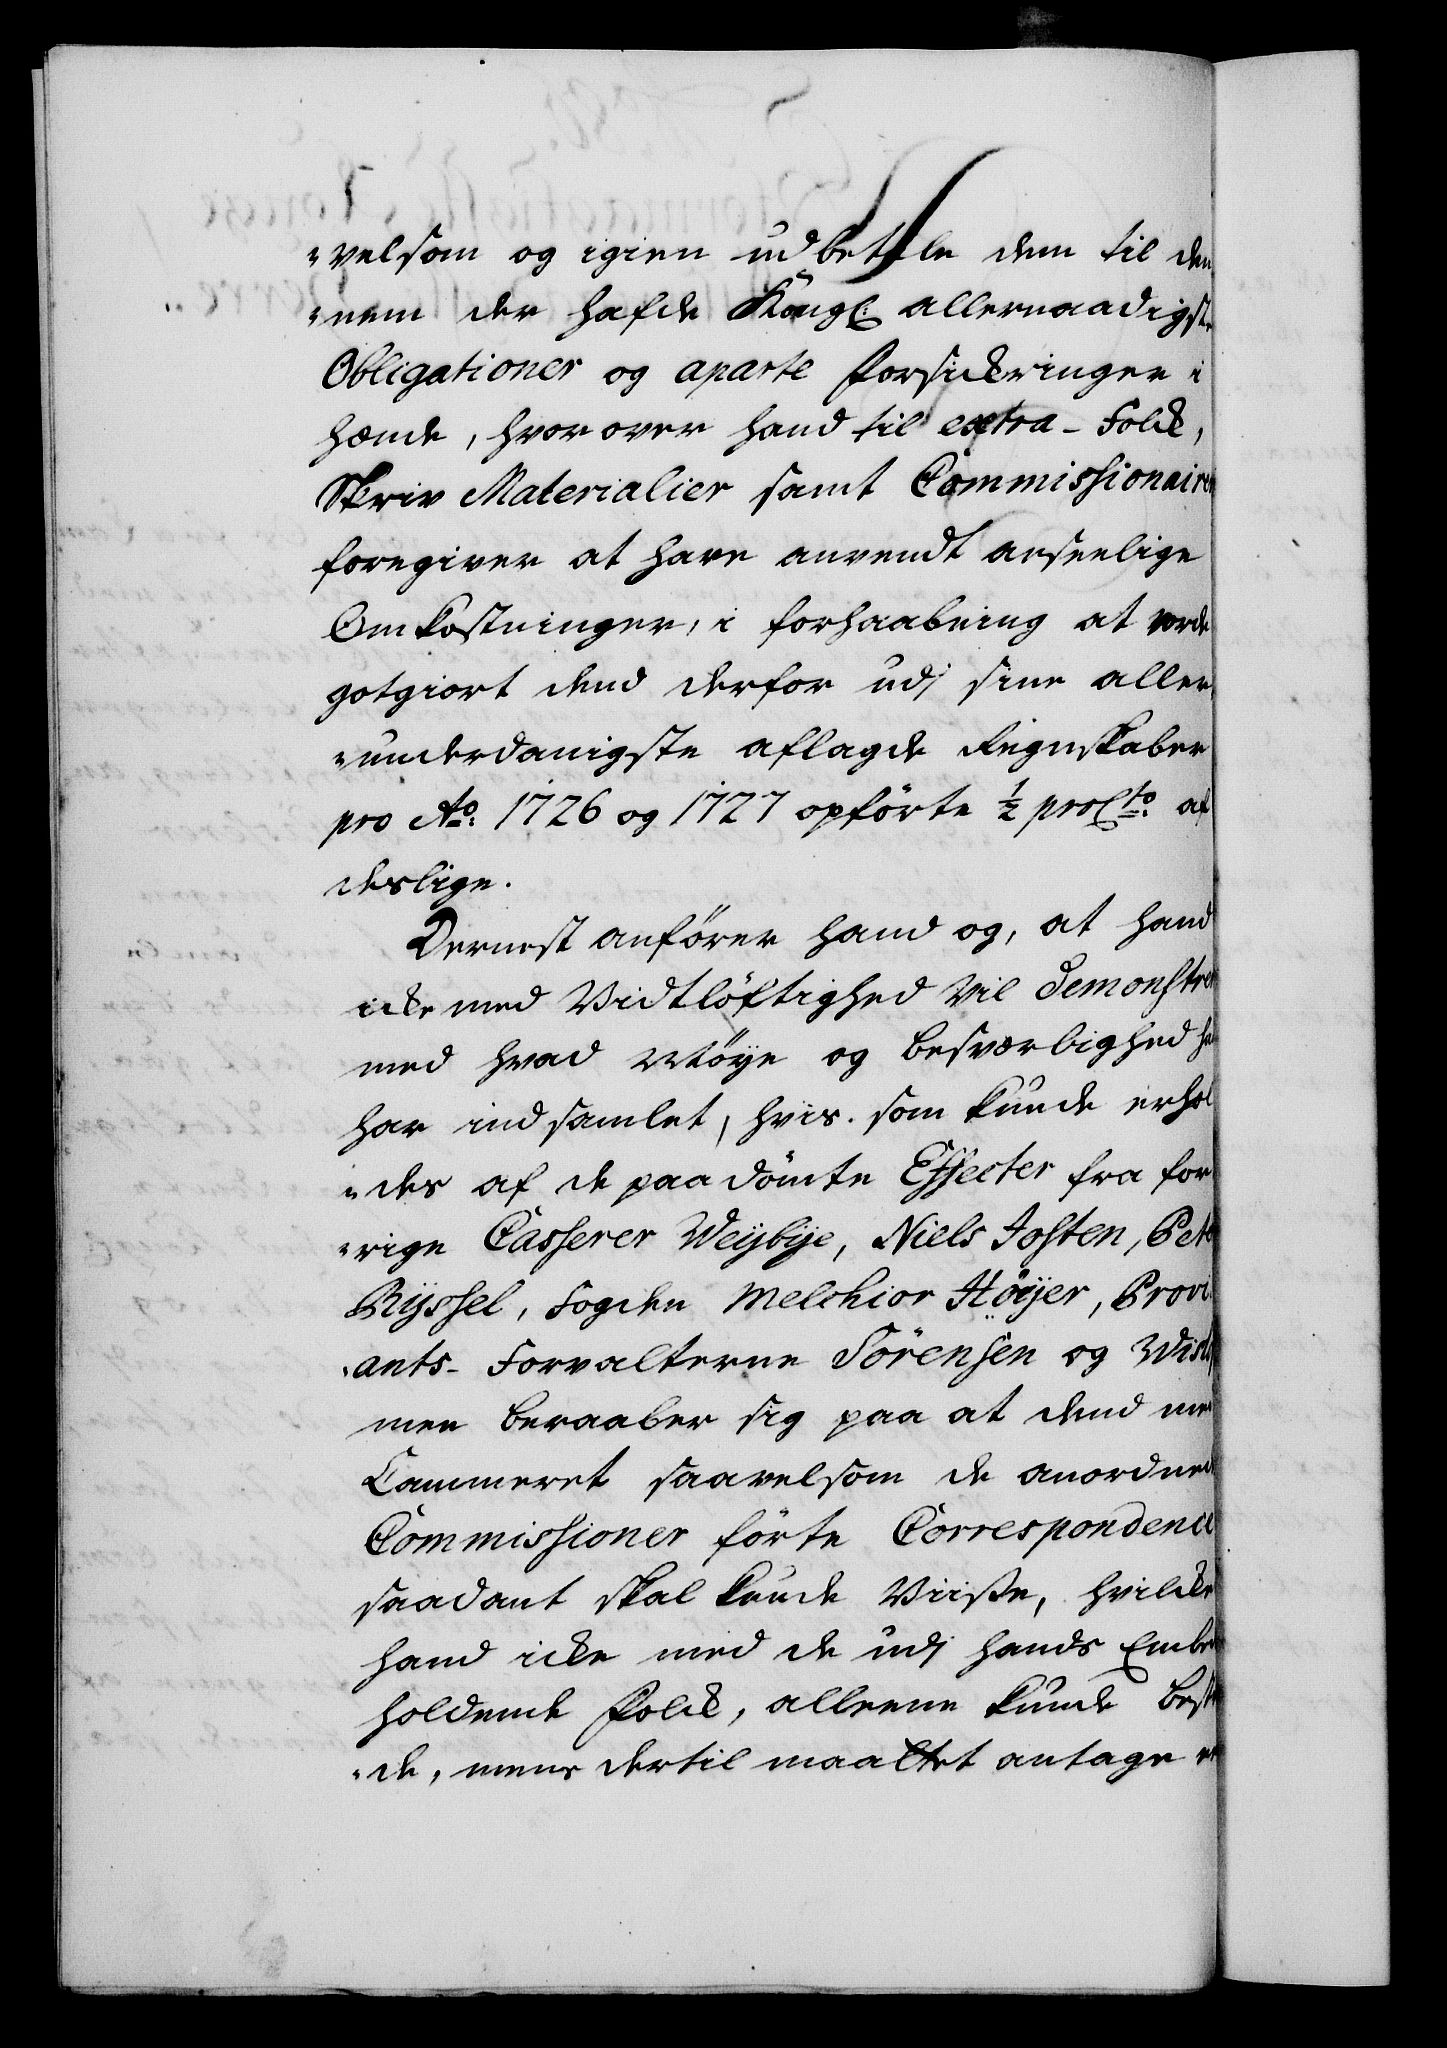 "velsom og igien udbetale dem til den
"nem der hafde Kongl. allernaadigste
Obligationer og aparte Forsickringer i
hænde, hvorover hand til extra-Folck,
Skriv Materialier samt Commissionairer
foregiver at have anvendt anseelige
Omkostninger, i forhaabning at vorde
gotgiort dend derfor udj sine aller
"underdanigste aflagde Regnskaber
pro Ao. 1726 og 1727 opförte ½ proCto. af
deslige.
Dernest anförer hand og, at hand
icke med Vidtlöftighed vil demonstre
med hvad Möye og besværlighed ha
har indsamlet, hvis som kunde erhol
"des af de paadömte Effecter fra for
"rige Casserer Weybye, Niels Josten, Pet
Ryssel, Fogden Melchior Höyer, Provi
"ants-Forvalterne Sörensen og
men beraaber sig paa at dend med
Cammeret saavelsom de anordned
Commissioner förte Correspondence
saadant skal kunde Viise, hvilcke
hand icke med de udj hands Embe
holdende Folck, alleene kunde best
"de, mens dertil maattet antage